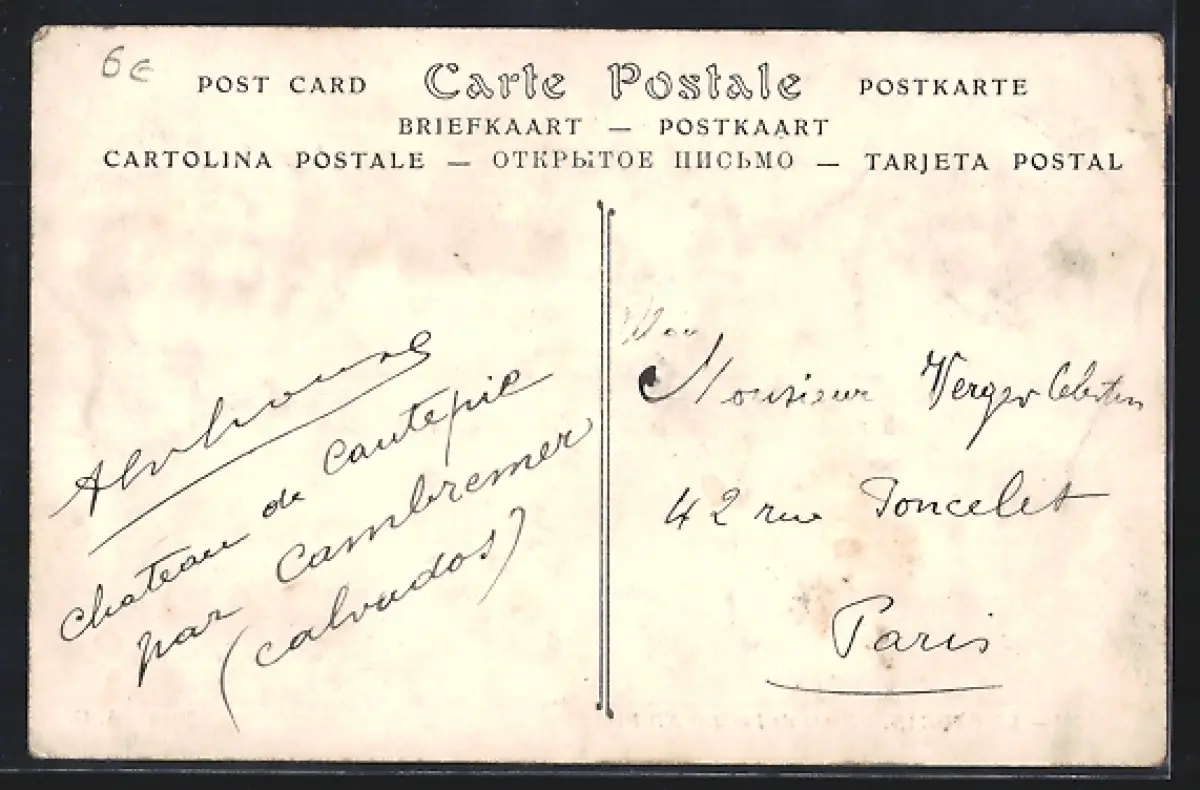 6€
POST CARD Carte Postale POSTKARTE
BRIEFKAART — POSTKAART
CARTOLINA POSTALE — ОТКРЫТОЕ ПИСЬМО — TARJETA POSTAL
chateau de Cantepie
par Cambremer
(calvados)
Monsieur Verger Celestin
42 rue Poncelet
Paris